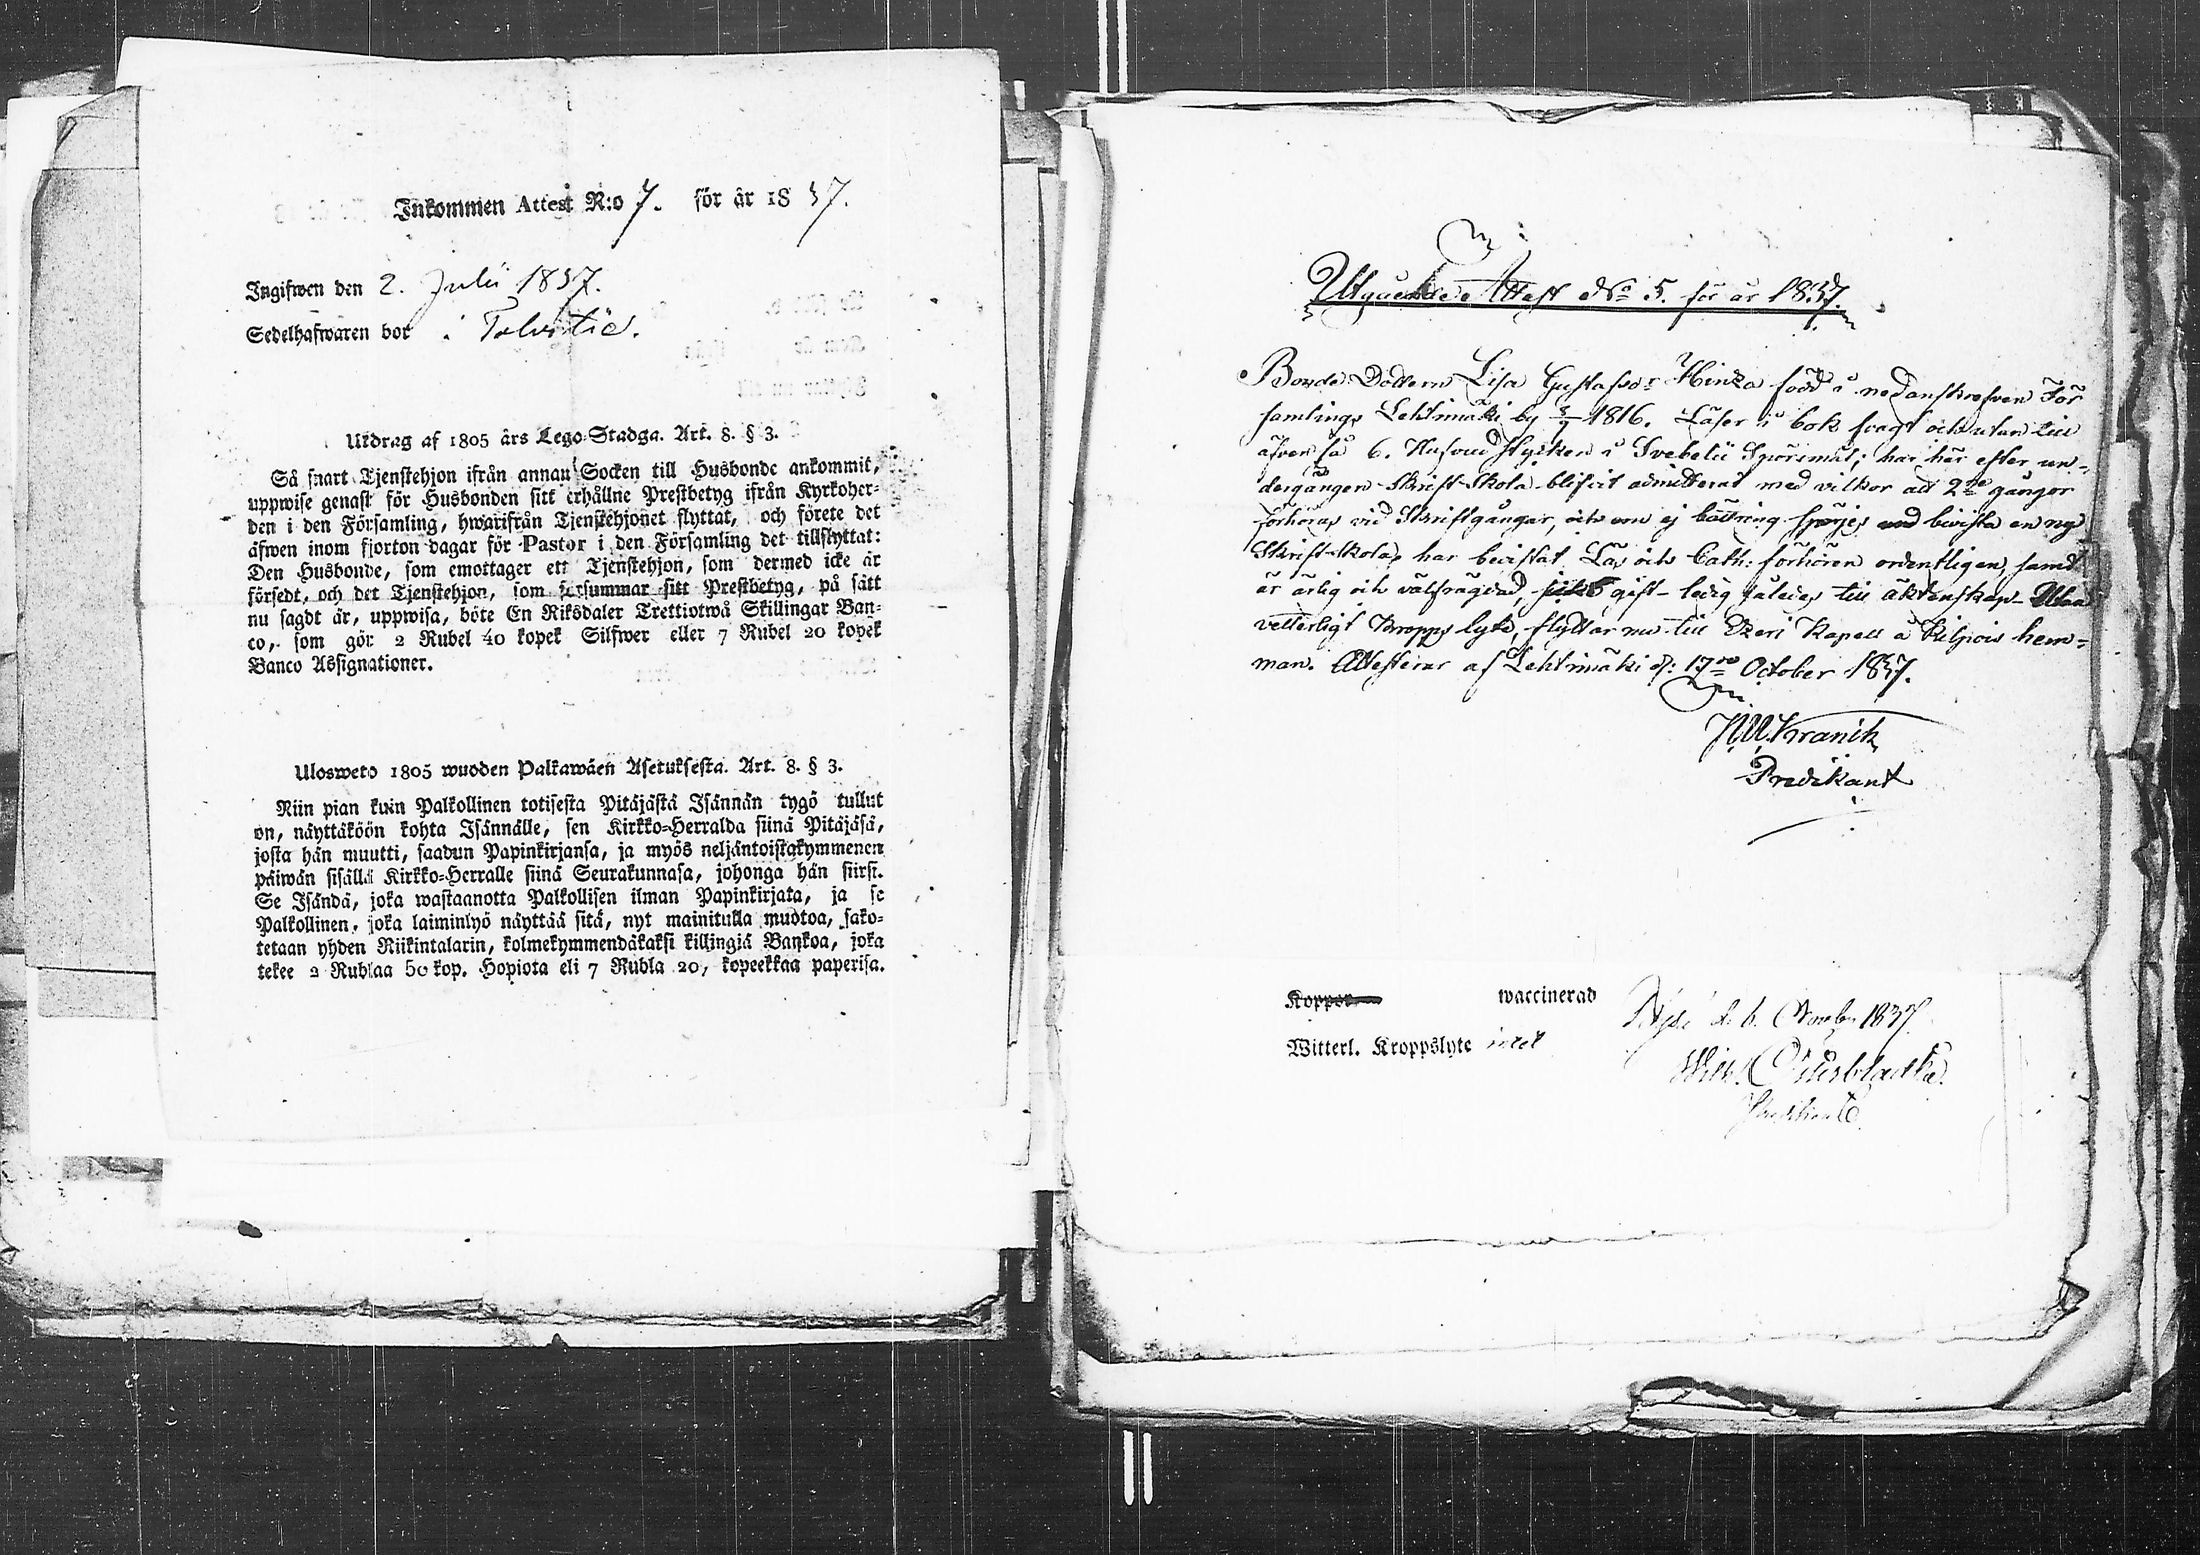 Inkommen Attest N:o 7. för år 1837.
Ingifwen den 2. Julii 1837.
Sedelhafwaren bor i
Utdrag af 1805 års Lego-Stadga. Art. 8. § 3.
Så snart Tjenstehjon ifrån annan Socken till Husbonde ankommit,
uppwise genast för Husbonden sitt erhållne Prestbetyg ifrån Kyrkoher-
den i den Församling, hwarifrån Tjenstehjonet flyttat, och förete det
äfwen inom fjorton dagar för Pastor i den Församling det tillflyttat:
Den Husbonde, som emottager ett Tjenstehjon, som dermed icke är
försedt, och det Tjenstehjon, som försummar sitt Prestbetyg, på sätt
nu sagdt är, uppwisa, böte En Riksdaler Trettiotwå Skillingar Ban-
co, som gör 2 Rubel 40 kopek Silfwer eller 7 Rubel 20 kopek
Banco Assignationer.
Ulosweto 1805 wuoden Palkawäen Asetuksesta. Art. 8. § 3.
Niin pian kuin Palkollinen totisesta Pitäjästä Isännän tygö tullut
on, näyttäköön kohta Isännälle, sen Kirkko-Herralda siinä Pitäjäsä,
josta hän muutti, saadun Papinkirjansa, ja myös neljäntoistakymmenen
päiwän sisällä Kirkko-Herralle siinä Seurakunnasa, johonga hän siirst.
Se Isändä, joka wastaanotta Palkollisen ilman Papinkirjata, ja se
Palkollinen, joka laiminlyö näyttää sitä, nyt mainitulla mudtoa, sako-
tetaan yhden Riikintalarin, kolmekymmendäkaksi killingiä Bankoa, joka
tekee 2 Rublaa 50 kop. Hopiota eli 7 Rubla 20, kopeekkaa paperisa.
Utgående Attest No 5. för år 1837.
Bonde Dottern Lisa Gustafsdr Hinza född i nedanskrefven För
samlings Lehtimäki by 1816. Läser i bok svagt och utan till
äfven så 6. Hufvud stycken i Svebelii Spörsmål; har här efter un-
dergången Skrift-Skola blifvit admitterat med vilkor att 2ne gångor
förhöras vid Skriftgångar, och om ej bättring spörjes bevista en ny
Skrift-skola, har bevistat Läs och Cath: förhören ordentligen, samt
är ärlig och välfrägdad, gift-ledig således till äktenskap. Utan
vetterligt kropps lyte, flyttar nu till Etzeri Kapell å Kilpois hem-
man. Attesterar af Lehtimäki d: 17de October 1837.
Kranck
Predikant
Koppor waccinerad
Witterl. Kroppslyte intet
d. 6. 1837